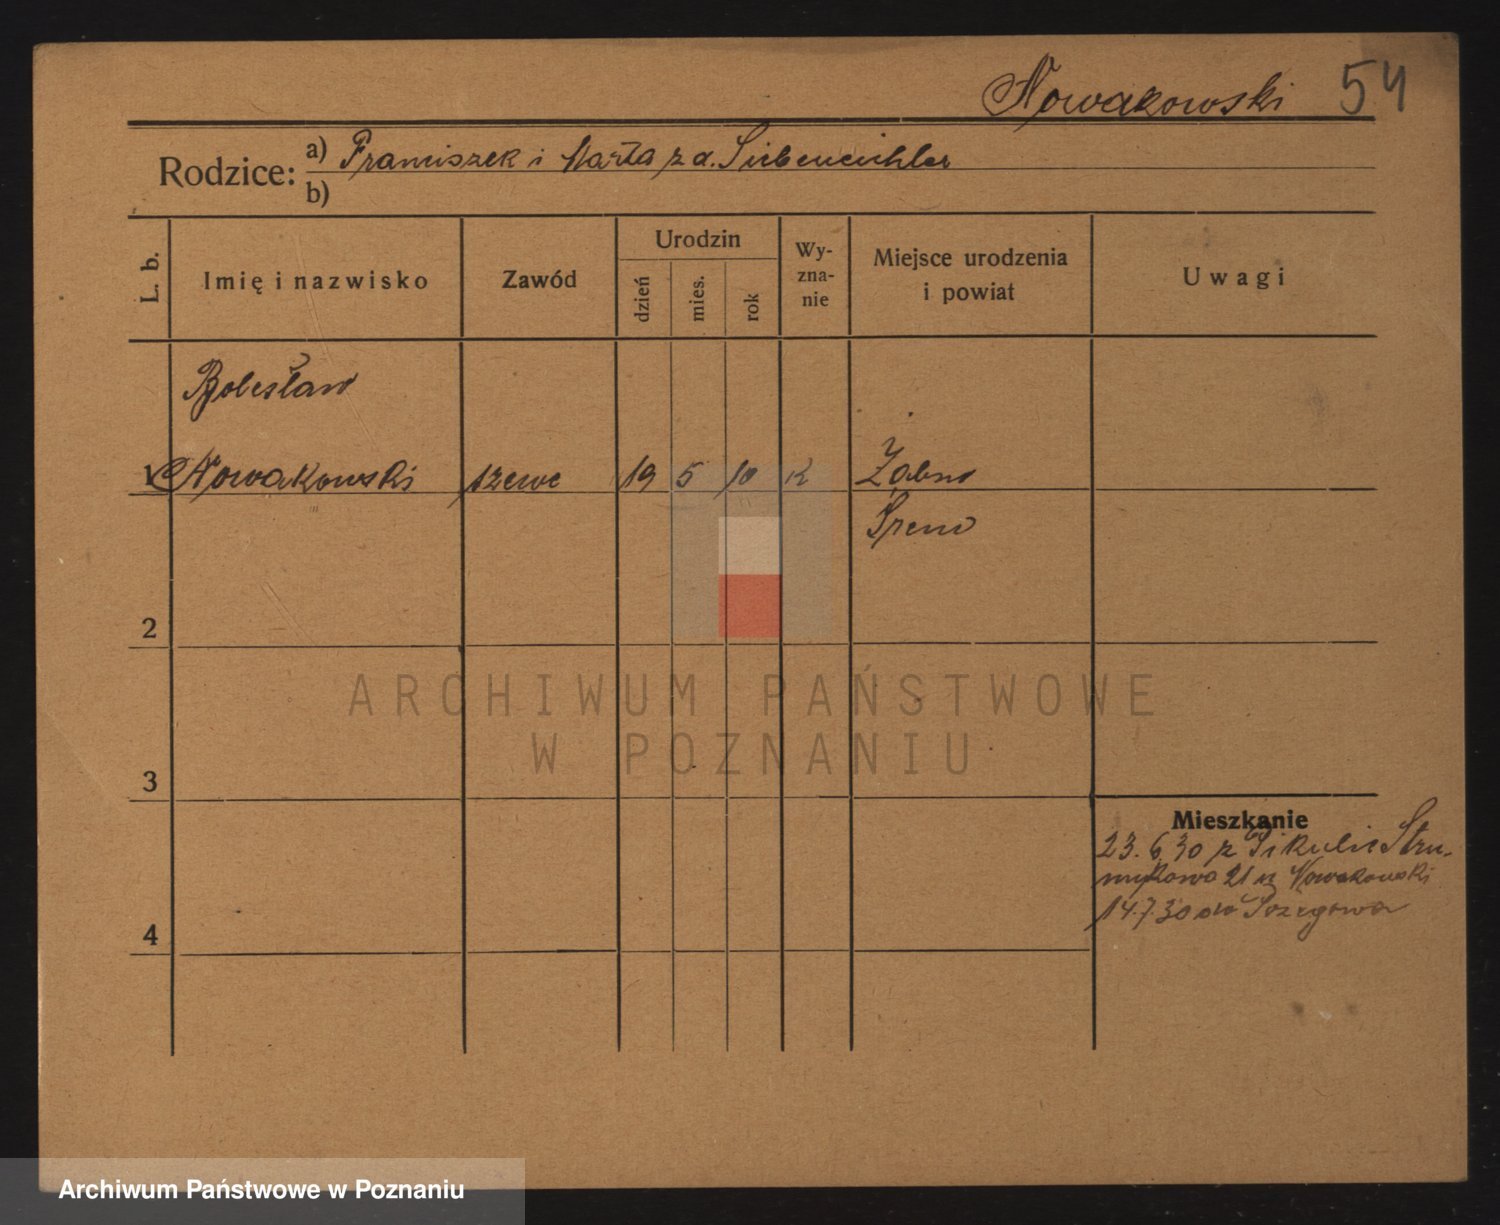 Nowakowski 54
Rodzice: a) Franciszek i Marta z d. Siebeneichler
b)
L. b.
Imię i nazwisko
Zawód
Urodzin
dzień
mies.
rok
Wy-
zna-
nie
Miejsce urodzenia
i powiat
Uwagi
Bolesław
1 Nowakowski szewc 19 5 10 K Żabno
Śrem
2
ARCHIWUM PAŃSTWOWE
W POZNANIU
3
Mieszkanie
23.6.30 z Pikulic Stru-
mykowa 21 u Nowakowski
14.7.30 do
4
Archiwum Państwowe w Poznaniu